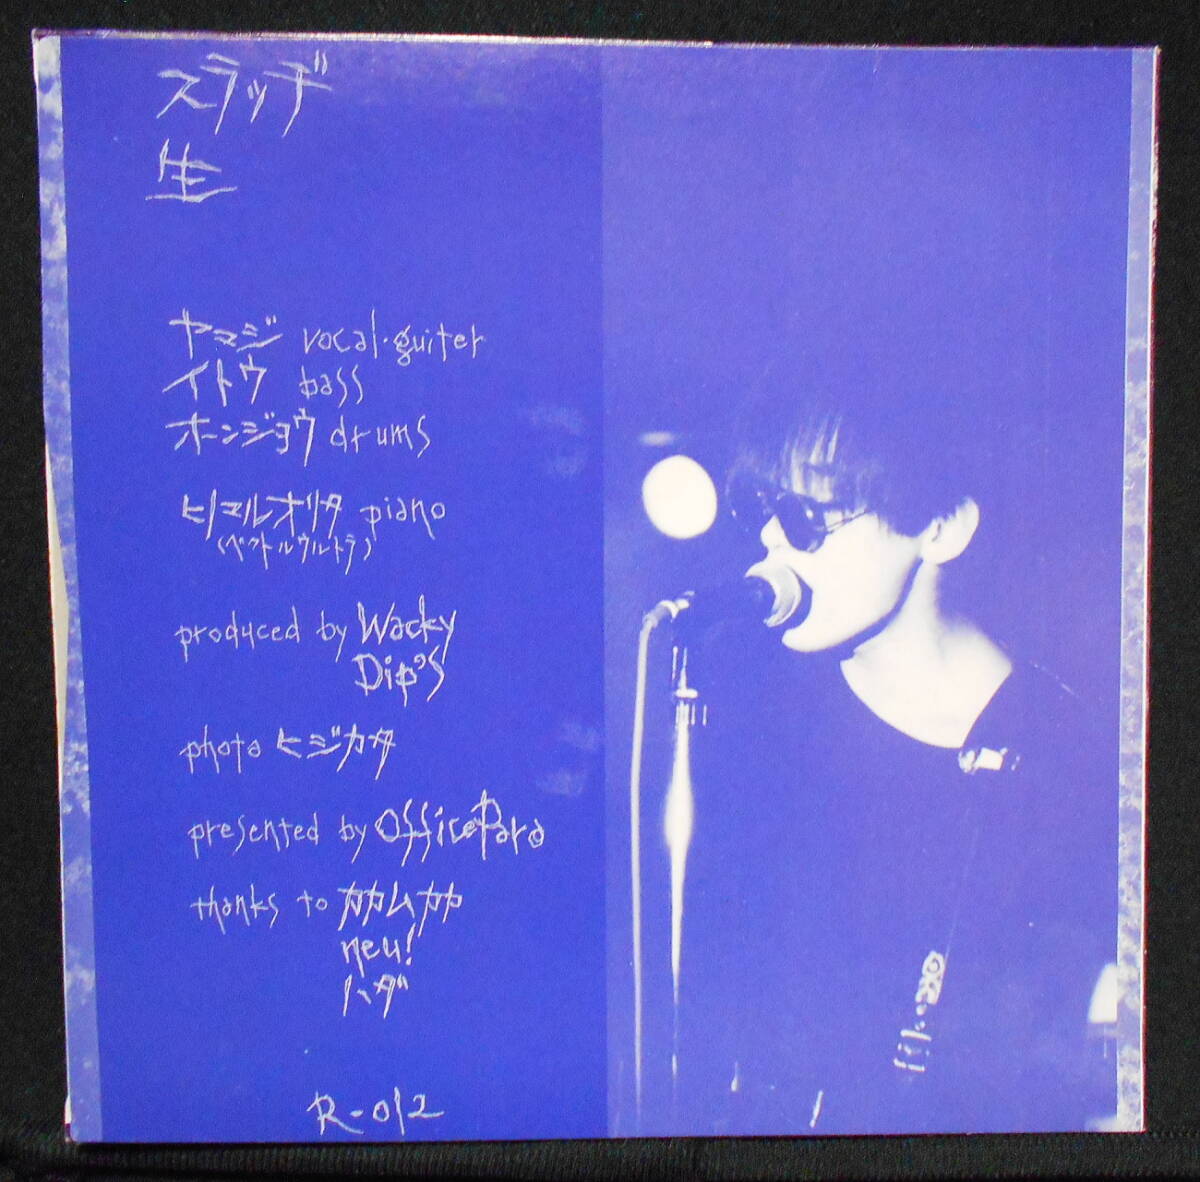 スラッヂ
生
ヤマジ vocal・guiter
イトウ bass
ホーンジョウ drums
ヒノマルオリタ piano
(ベクトルウルトラ)
produced by Wacky
Dip's
photo ヒジカタ
presented by OfficePara
thanks to カカムカカ
neu!
ハダ
R-012